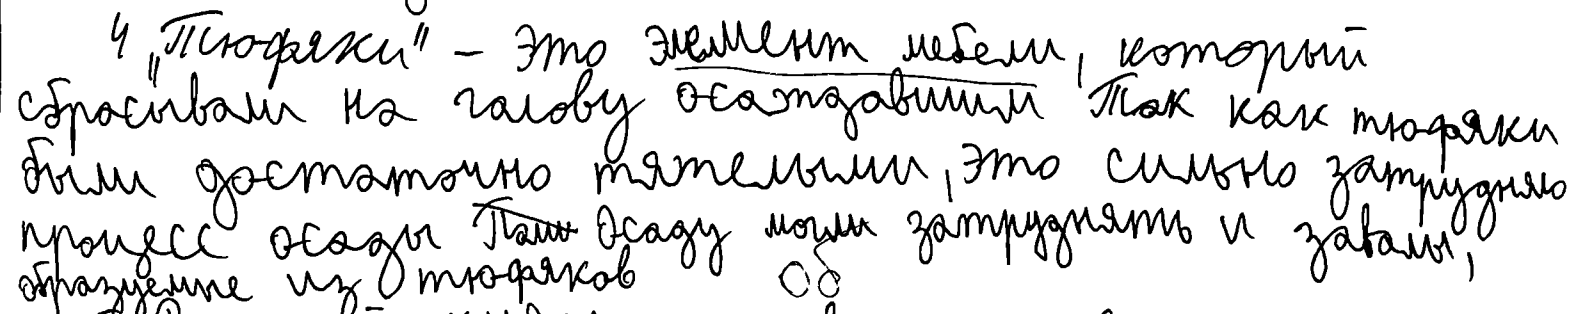 4 „Тюфяки" – это элемент мебели, который
сбрасывали на голову осаждавшим Так как тюфяки
были достаточно тяжелыми, это сильно затрудняло
процесс осады Осаду могли затруднять и завалы,
образуемые из тюфяков Об